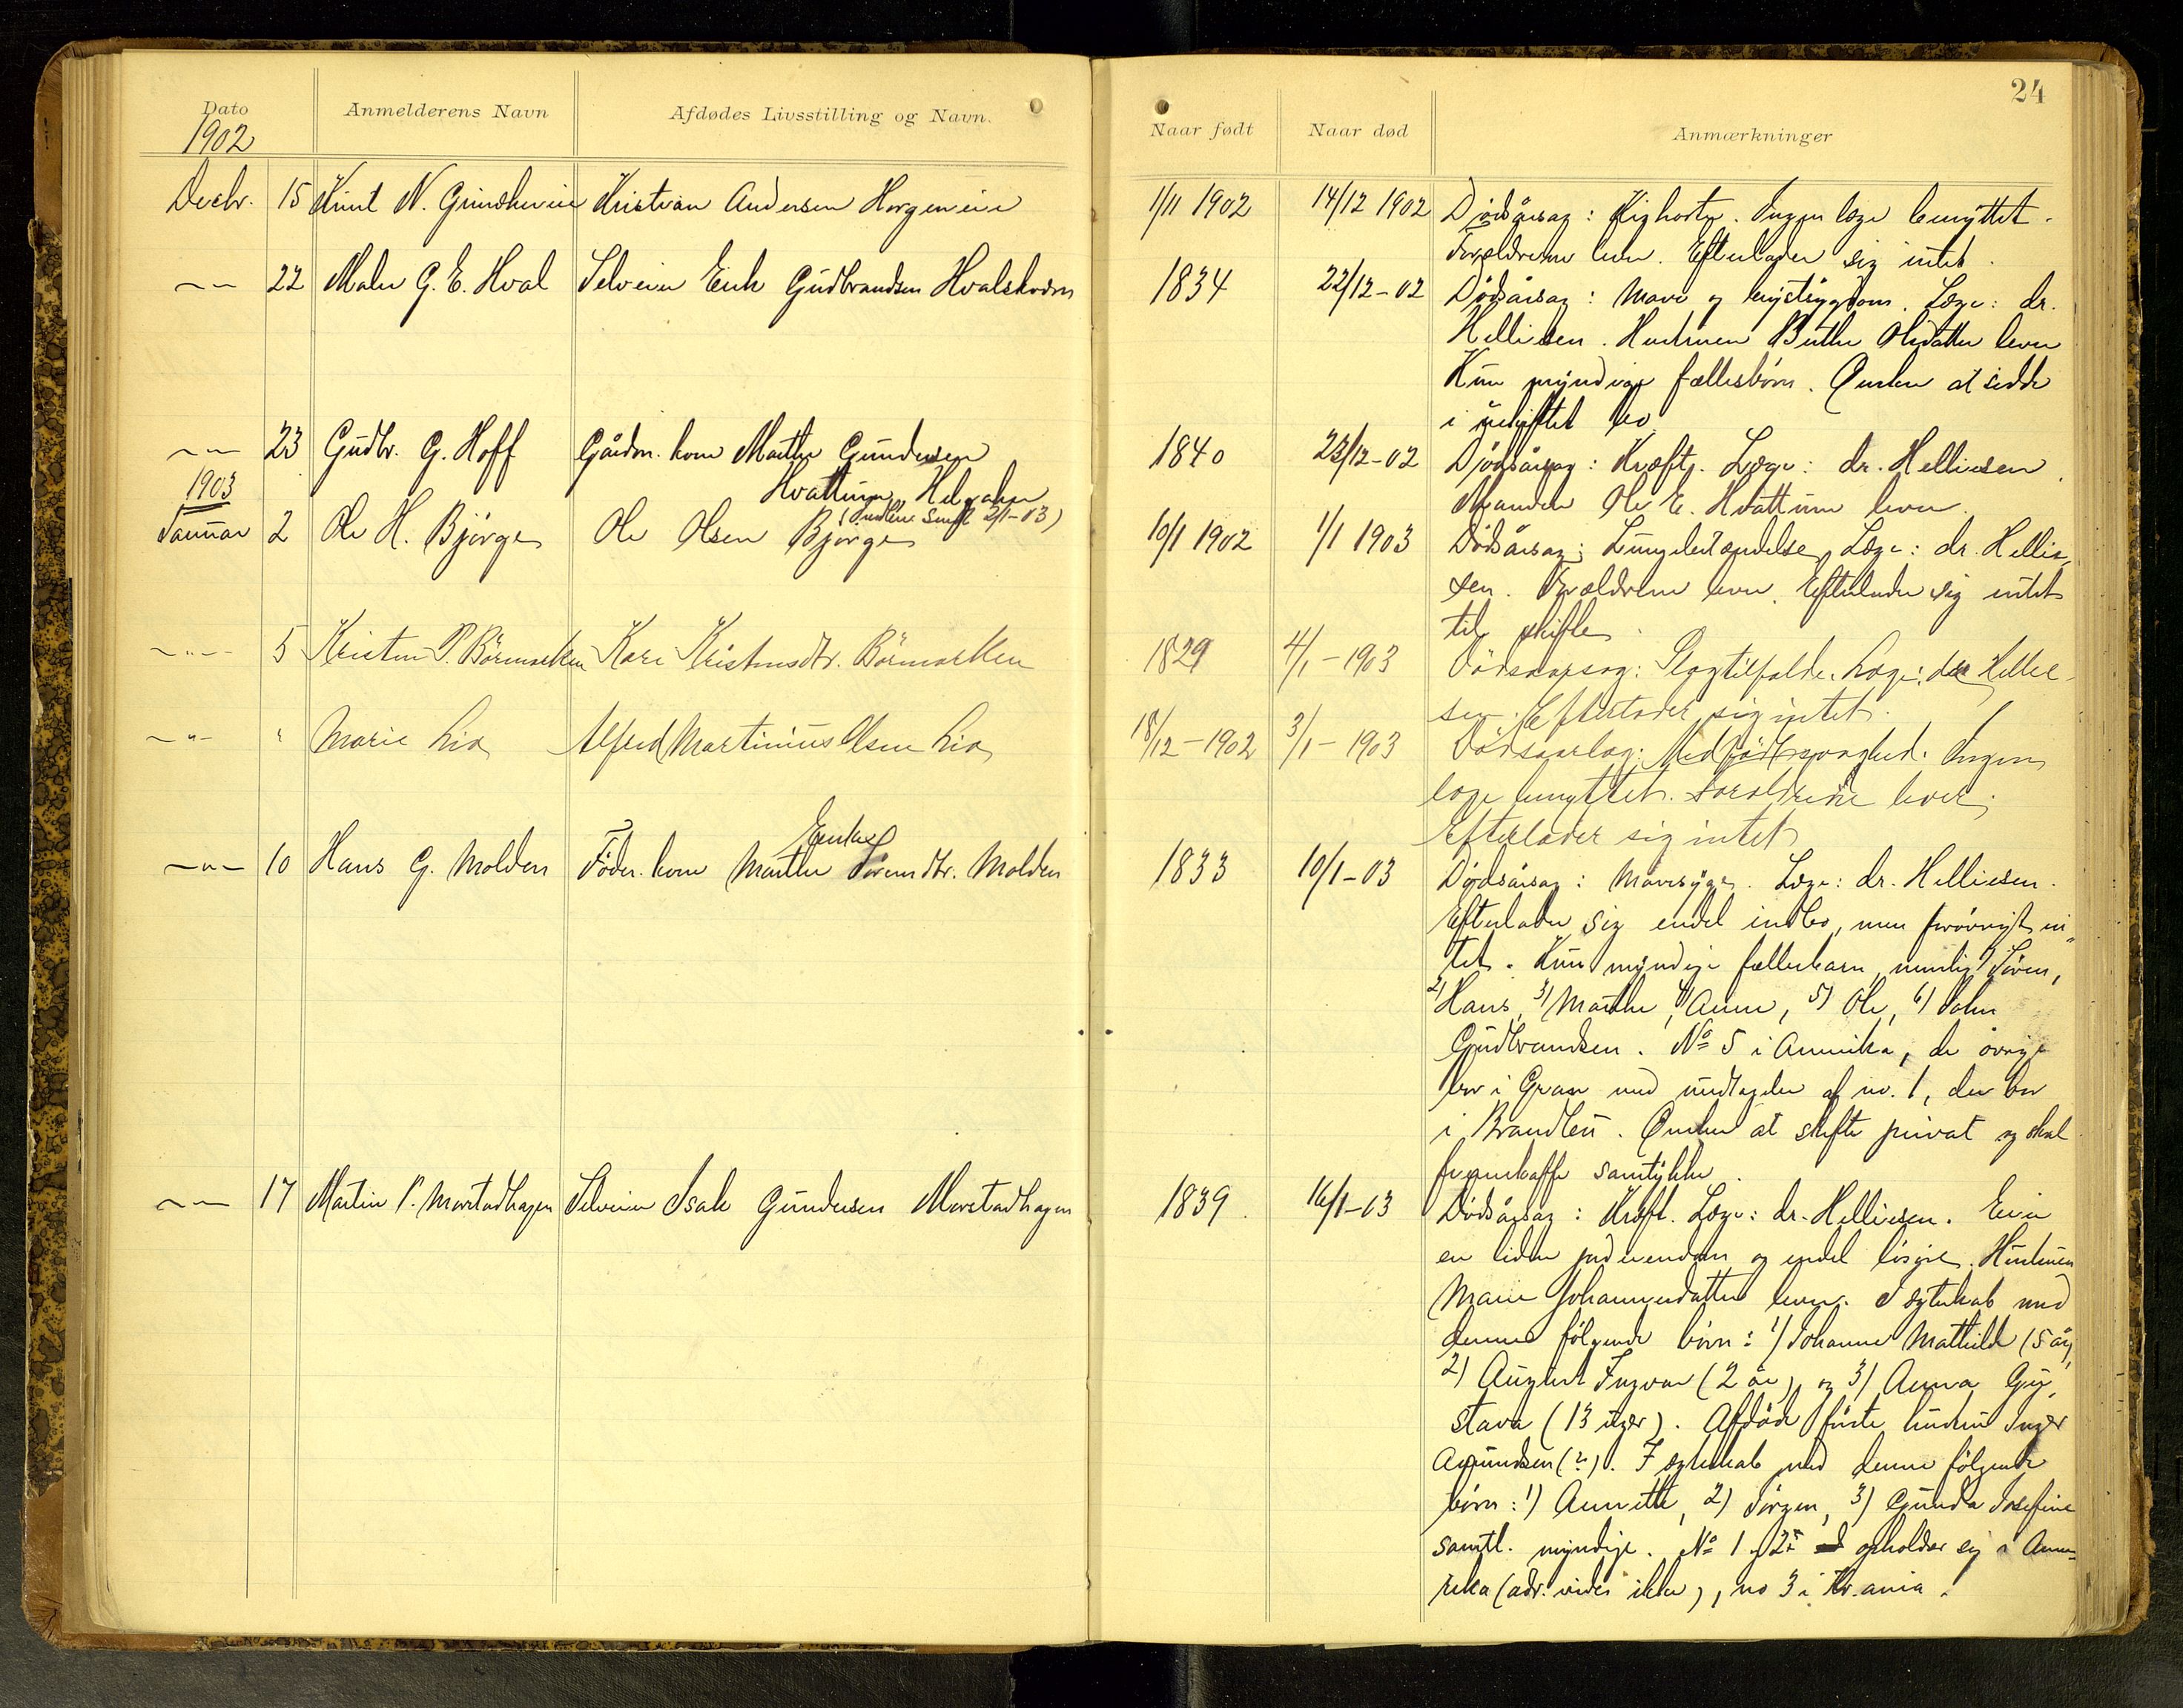 24
Dato
Anmelderens Navn
Afdødes Livsstilling og Navn.
Naar født
Naar død
Anmærkninger
1902
Decbr. 15 Knut N. Grindhereie Kristian Andersen Horgeneie 1/11 1902 14/12 1902 Dødsårsag: Kighoste. Ingen læge benyttet.
Forældrene lever. Efterlader sig intet.
-"- 22 Maler G. E. Hval Selveier Erik Gudbrandsen Hvalskvern 1834 22/12-02 Dødsårsag: Mave og brystsygdom. Læge: dr.
Helliesen. Hustruen Berthe Olsdatter lever
Kun myndige fællesbörn. Önsker at sidde
i uskiftet bo
-"- 23 Gudbr. G. Hoff Gårdm. kone Marthe Gundersen 1840 23/12-02 Dødsårsag: Kræft. Læge: dr. Helliesen.
Hvattum, Helgaker
Manden Ole E. Hvattum lever.
1903
(Sendt 2/1-03)
Januar 2 Ole H. Björge Ole Olsen Björge 10/1 1902 1/1 1903 Dödsårsag: Lungebetændelse, Læge: dr. Hellie-
sen. Forældrene lever. Efterlader sig intet
til skifte.
-"- 5 Kristen P. Börmarken Kari Kristensdtr. Börmarken 1829 4/1-1903 Dödsaarsag: Slagtilfælde. Læge: dr Hellie-
sen. Efterlader sig intet.
-"- " Marie Lia Alfred Martinius Olsen Lia 18/12-1902 3/1-1903 Dödsaarsag: Medfödt svaghed. Ingen
læge benyttet. Forældrene lever.
Efterlader sig intet
Enke
-"- 10 Hans G. Molden Föder. kone Marthe Sörensdtr. Molden 1833 10/1-03 Dödsårsag: Mavesyge. Læge: dr. Helliesen.
Efterlader sig endel indbo, men forövrigt in-
tet. Kun myndige fællesbarn, nemlig 1) Sören,
2) Hans, 3) Marthe, 4) Anne, 5) Ole, 6) John
Gudbrandsen. No 5 i Amerika, de övrige
bor i Gran med undtagelse af no. 1, der bor
i Brandbu. Önsker at skifte privat og skal
fremskaffe samtykke.
-"- 17 Martin P. Morstadhagen Selveier Isak Gundersen Morstadhagen 1839 16/1-03 Dödsårsag: Kræft. Læge: dr. Helliesen. Eier
en liden jordeiendom og endel lösöre. Hustruen
Marie Johannesdatter lever. I ægteskab med
denne fölgende börn: 1) Johanne Mathilde (5 år),
2) August Ingvar (2 år), og 3) Anna Gu-
stava (13 uger). Afdödes förste hustru Inger
Amundsen (?). I ægteskab med denne fölgende
börn: 1) Annette, 2) Jörgen, 3) Gunda Josefine
samtl. myndige. No 1 og 2 opholder sig i Ame-
rika (adr. vides ikke), no 3 i Kr.ania.